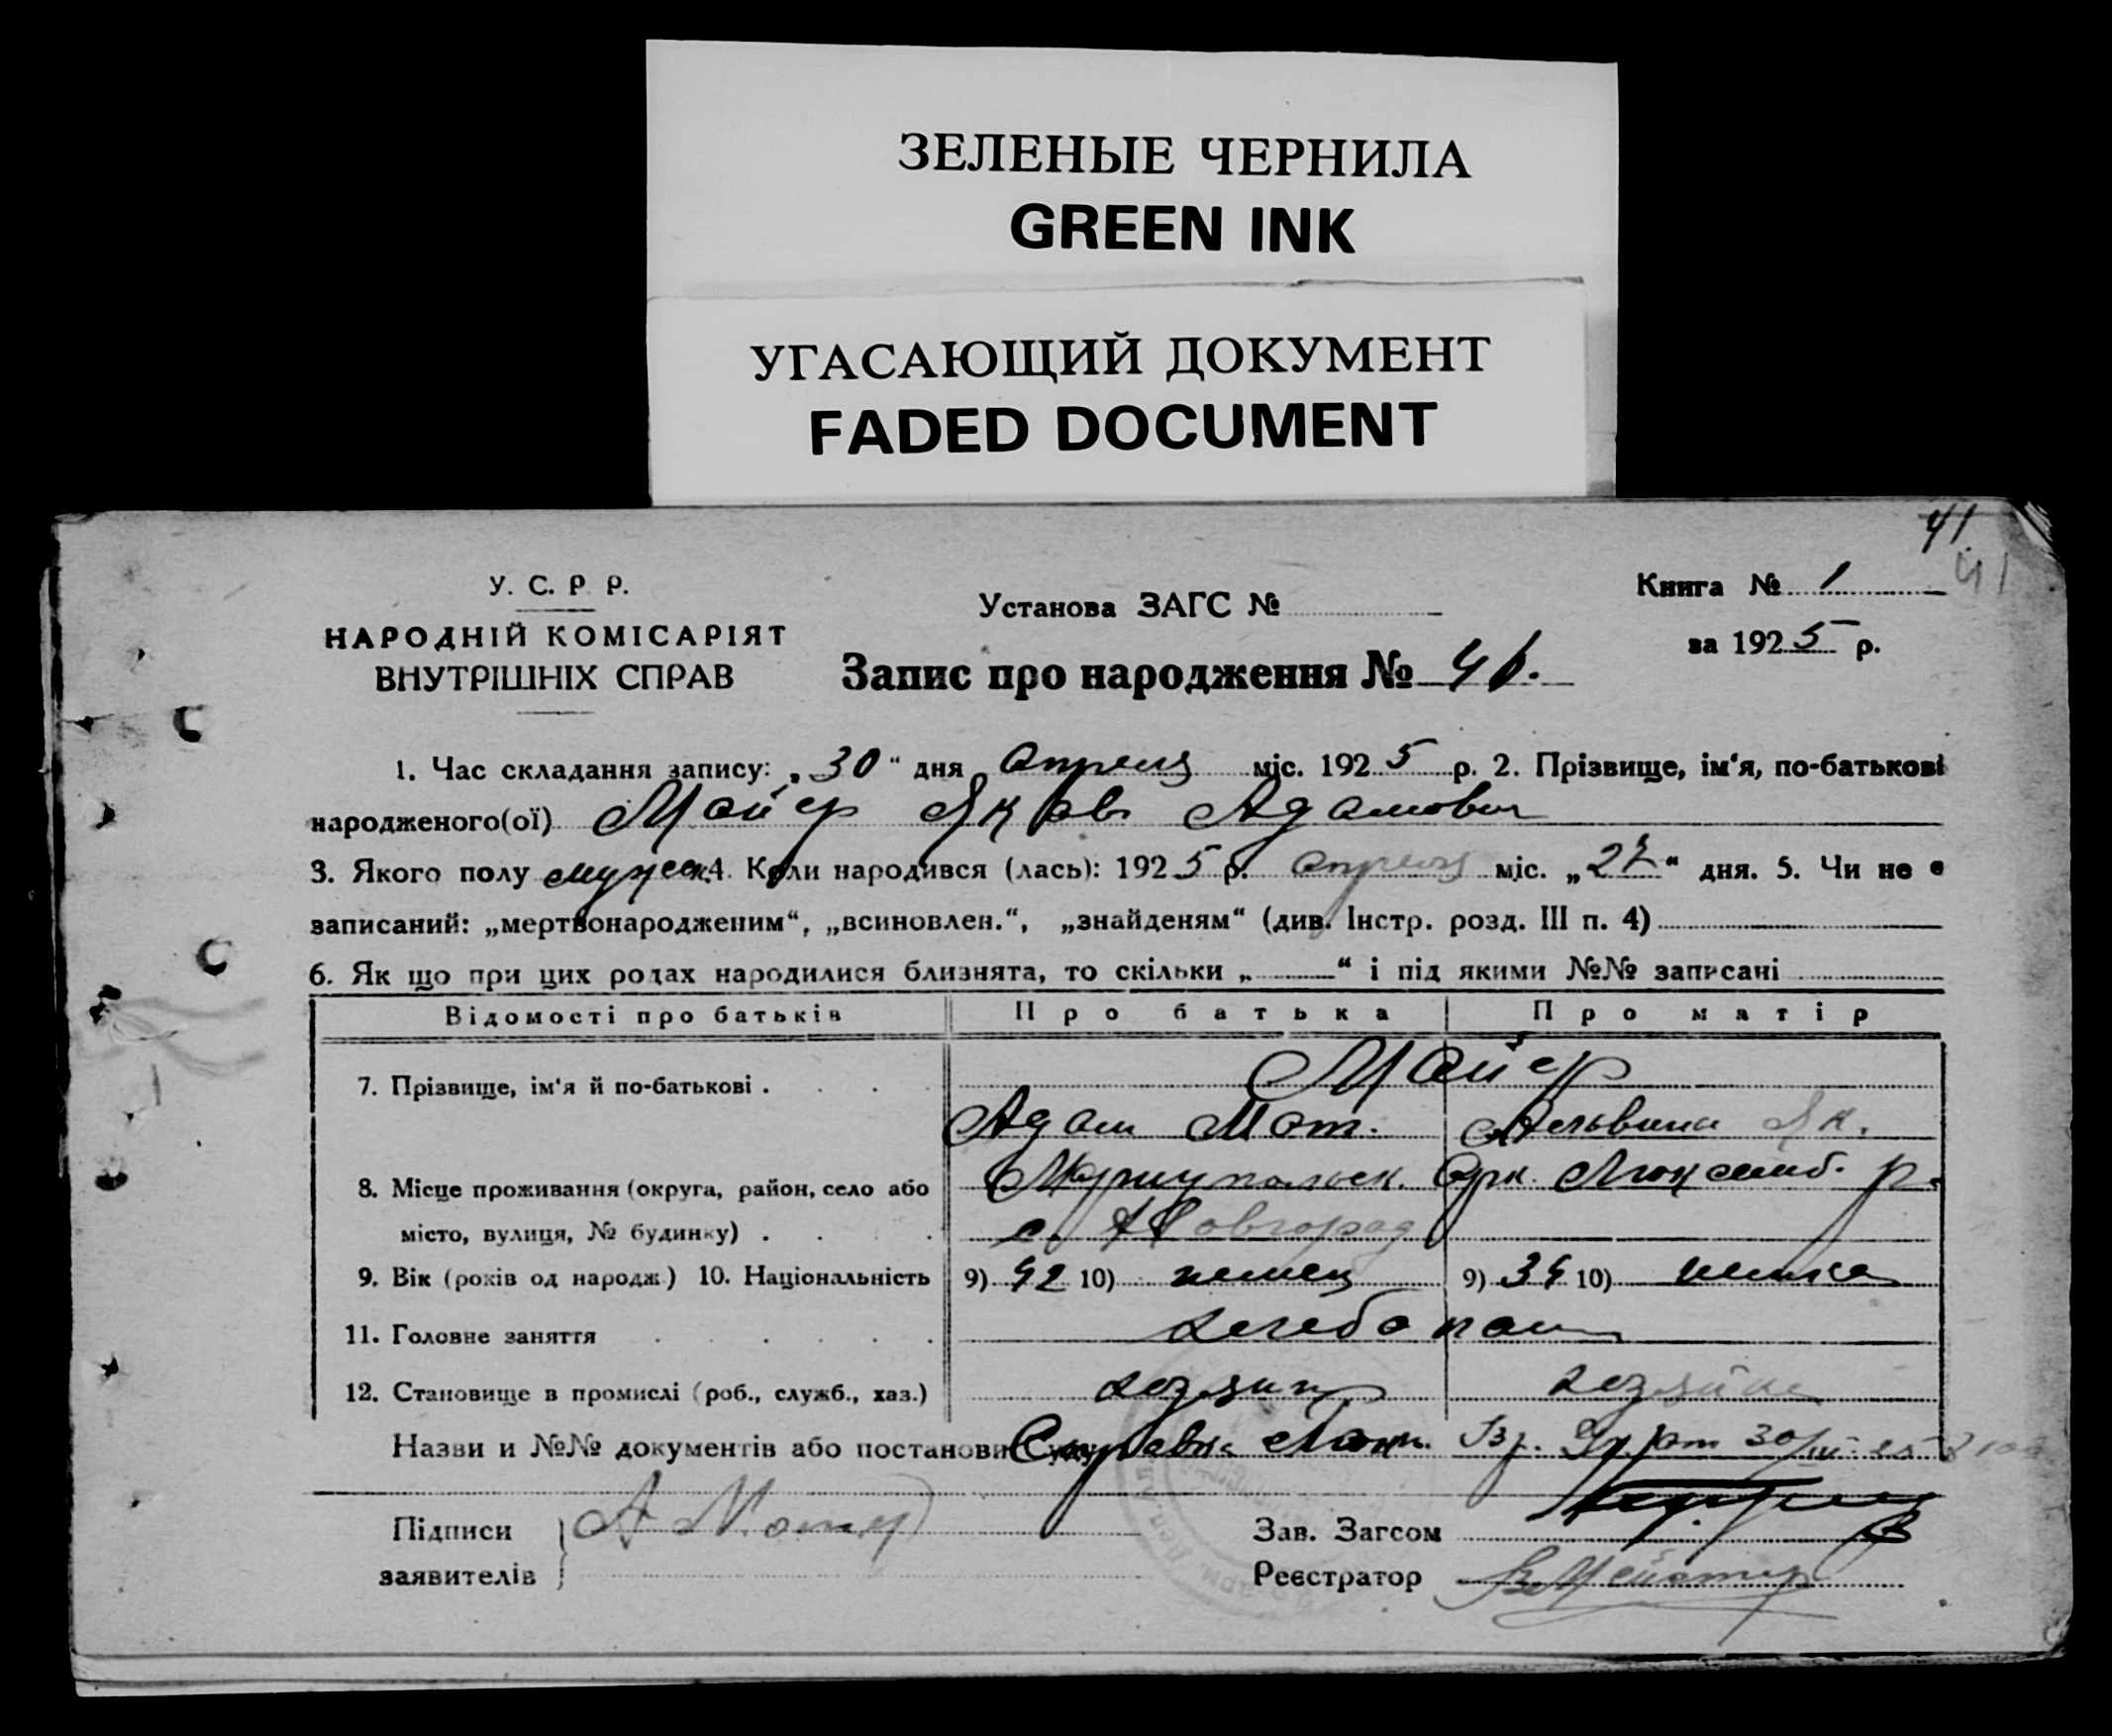 ЗЕЛЕНЫЕ ЧЕРНИЛА
GREEN INK
УГАСАЮЩИЙ ДОКУМЕНТ
FADED DOCUMENT
41
41
У. С. Р. Р.
НАРОДНІЙ КОМІСАРІЯТ
ВНУТРІШНІХ СПРАВ
Установа ЗАГС №
Книга № 1
за 1925 р.
Запис про народження № 41.
1. Час складання запису: „30“ дня апреля міс. 1925 р. 2. Прізвище, ім'я, по-батькові
народженого(ої) Майер Яков Адамович
3. Якого полу мужск. 4. Коли народився (лась): 1925 р. апреля міс. „27“ дня. 5. Чи не є
записаний: „мертвонародженим“, „всиновлен.“, „знайденям“ (див. Інстр. розд. III п. 4)
6. Як що при цих родах народилися близнята, то скільки „ “ і під якими №№ записані
Відомості про батьків Про батька Про матір
7. Прізвище, ім'я й по-батькові . Майер
Адам Мат. Альвина Як.
8. Місце проживання (округа, район, село або Мариупольск. Окр. Люксемб. р.
місто, вулиця, № будинку) . с. Новгород
9. Вік (років од народж.) 10. Національність 9) 42 10) немец 9) 34 10) немка
11. Головне заняття хлебопаш
12. Становище в промислі (роб., служб., хаз.) хозяин хозяйка
Назви и №№ документів або постанови Суду Справка от 30/IV 25
Підписи заявителів А Майер
Зав. Загсом
Реєстратор